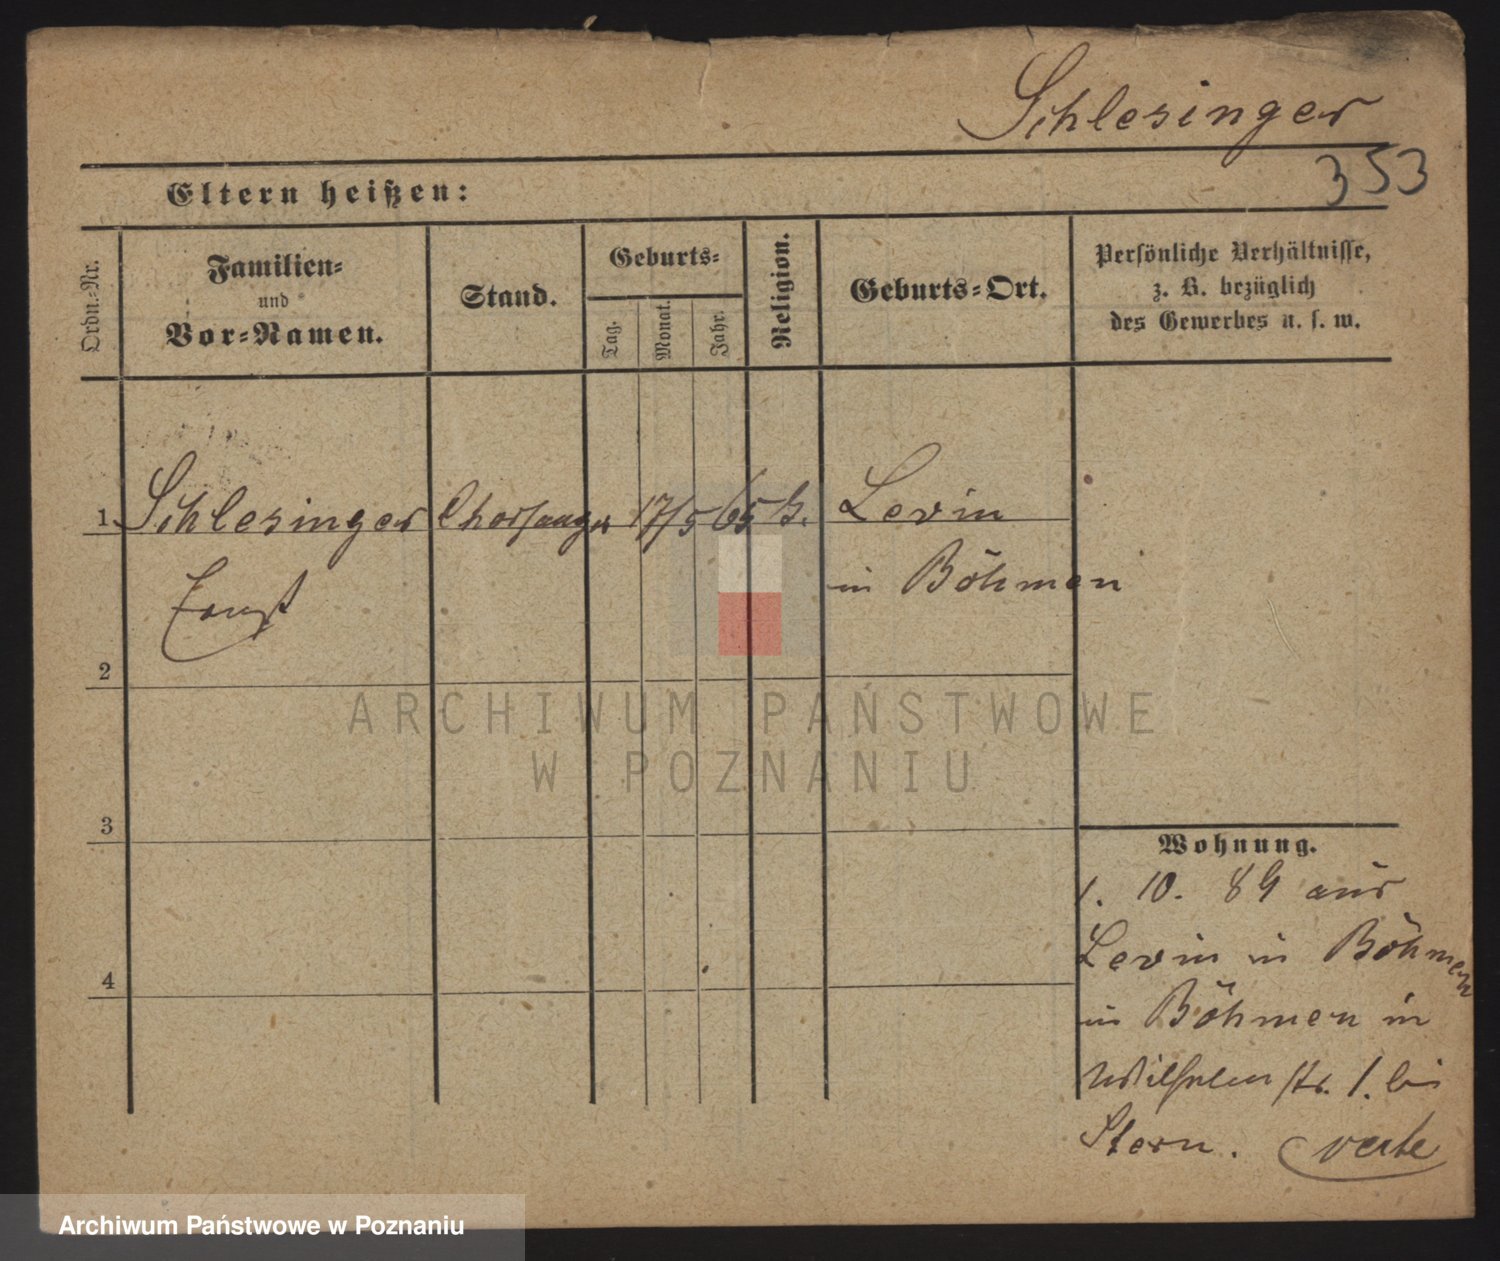 Schlesinger
353
Eltern heißen:
Ordn.-Nr.
Familien-
und
Vor-Namen.
Stand.
Geburts-
Tag.
Monat.
Jahr.
Religion.
Geburts-Ort.
Persönliche Verhältnisse,
z. B. bezüglich
des Gewerbes u. s. w.
1 Schlesinger Chorsänger 17/5 65 Levin
Ernst in Böhmen
2
3
4
Wohnung.
1. 10. 89 aus
Levin in Böhmen
in Böhmen in
Wilhelmstr. 1. bei
Stern. verte
ARCHIWUM PAŃSTWOWE
W POZNANIU
Archiwum Państwowe w Poznaniu